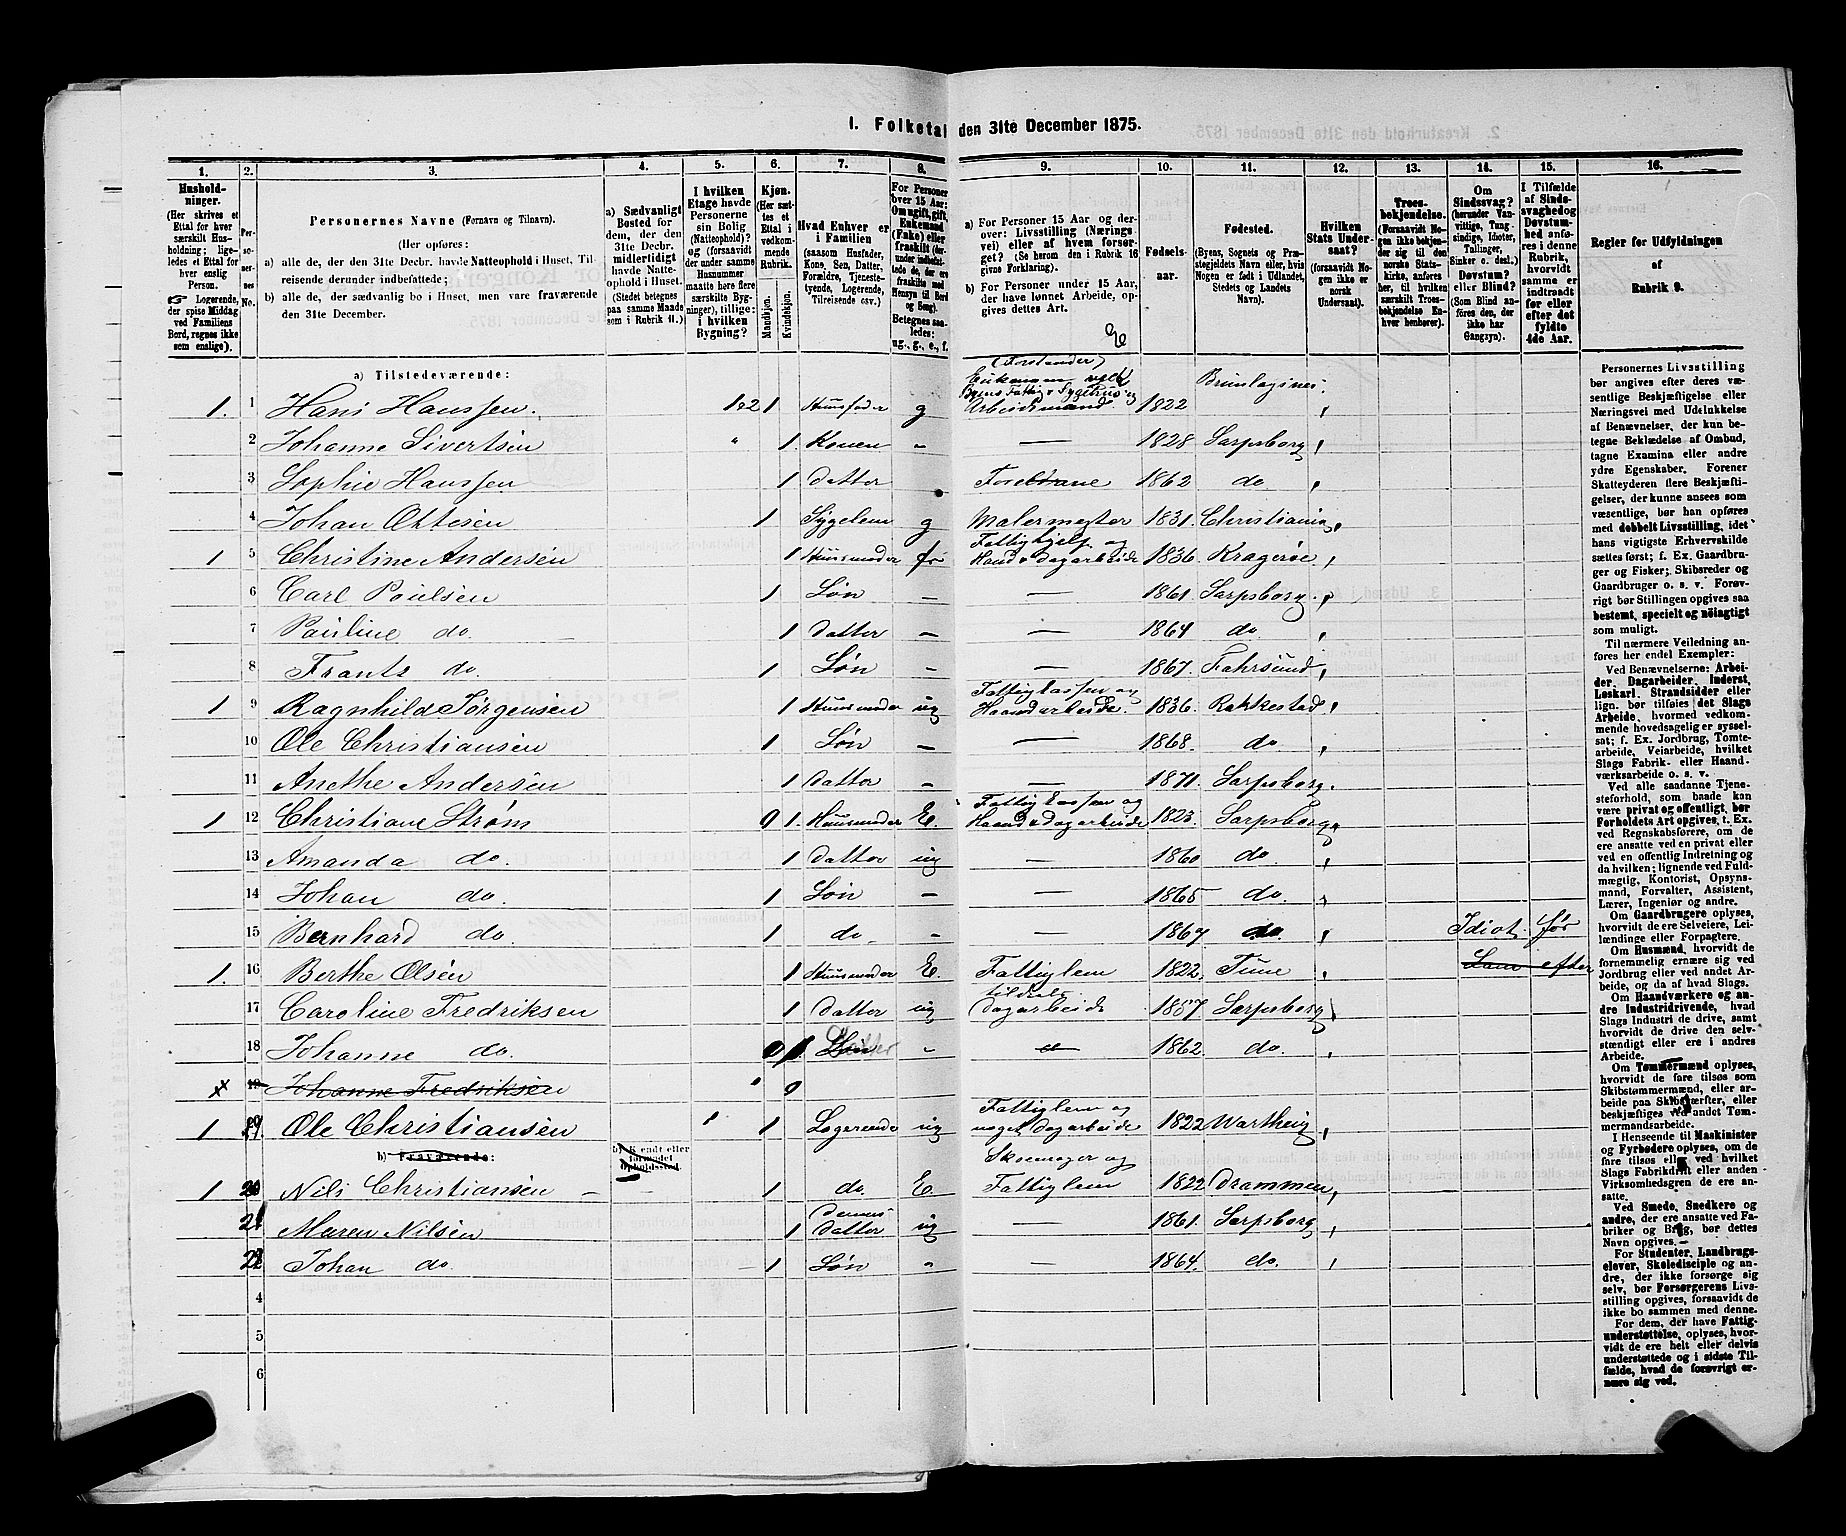 1. Folketal den 31te December 1875.
1. 2. 3. 4. 5. 6. 7. 8. 9. 10. 11. 12. 13. 14. 15. 16.
Hushold-
ninger.
(Her skrives et
Ettal for hver
særskilt Hus-
holdning; lige-
ledes et Ettal for
hver enslig
Person.
☞ Logerende,
der spise Middag
ved Familiens
Bord, regnes ikke
som enslige).
Per-
so-
ner-
nes
No.
Personernes Navne (Fornavn og Tilnavn).
(Her opføres:
a) alle de, der den 31te Decbr. havde Natteophold i Huset, Til-
reisende derunder indbefattede;
b) alle de, der sædvanlig bo i Huset, men vare fraværende
den 31te December.
a) Sædvanligt
Bosted for
dem, der den
31te Decbr.
midlertidigt
havde Natte-
ophold i Huset.
(Stedet betegnes
paa samme Maade
som i Rubrik 11.)
I hvilken
Etage havde
Personerne
sin Bolig
(Natteophold)?
og (forsaavidt
der under samme
Husnummer
maatte høre flere
særskilte Byg-
ninger), tillige:
i hvilken
Bygning?
Kjøn.
(Her sæt-
tes et
Ettal i
vedkom-
mende
Rubrik.
Mandkjøn.
Kvindekjøn.
Hvad Enhver er
i Familien
(saasom Husfader,
Kone, Søn, Datter,
Forældre, Tjeneste-
tyende, Logerende,
Tilreisende osv.)
For Personer
over 15 Aar:
Om ugift, gift,
Enkemand
(Enke) eller
fraskilt (der-
under indbefat-
tede de, der ere
fraskilte med
Hensyn til Bord
og Seng).
Betegnes saa-
ledes:
ug., g., e., f.
a) For Personer 15 Aar og der-
over: Livsstilling (Nærings-
vei) eller af hvem forsør-
get? (Se herom den i Rubrik 16
givne Forklaring).
b) For Personer under 15 Aar,
der have lønnet Arbeide, op-
gives dettes Art.
Fødsels-
aar.
Fødested.
(Byens, Sognets og Præ-
stegjeldets Navn eller, hvis
Nogen er født i Udlandet,
Stedets og Landets
Navn).
Hvilken
Stats Under-
saat?
(forsaavidt No-
gen ikke er
norsk
Undersaat).
Troes-
bekjendelse.
(Forsaavidt No-
gen ikke bekjen-
der sig til den
norske Stats-
kirke, anføres
her, til hvilken
særskilt Troes-
bekjendelse En-
hver henhører).
Om
Sindssvag?
(herunder Van-
vittige, Tung-
sindige, Idioter,
Tullinger,
Sinker o. desl.)
Døvstum?
eller Blind?
(Som Blind an-
føres den, der
ikke har
Gangsyn).
I Tilfælde
af Sinds-
svaghed og
Døvstum-
hed anfø-
res i denne
Rubrik,
hvorvidt
samme er
indtraadt
før eller
efter det
fyldte
4de Aar.
Regler for Udfyldningen
af
Rubrik 9.
a) Tilstedeværende:
(Forstander)
1. 1 Hans Hanssen. 1&2 1 Huusfader g Arbeidsmand. 1822
2 Johanne Sivertsen " 1. Konen – — 1828 Sarpsborg
3 Sophie Hanssen 1 Datter 1862 do
4 Johan Ottesen 1 Sygelem g Malermester 1831. Christiania
Fattighjelp og
1 5 Christine Andersen 1 Huusmoder 1836 Kragerøe
6 Carl Poulsen 1 Søn – — 1861. Sarpsborg
7 Pauline do 1 Datter – — 1864 do
8 Frants do. 1 Søn – — 1867. Fahrsund
Fattigkassen og
1 9 Ragnhild Jørgensen 1 Huusmoder ug Haandarbeide. 1836. Rakkestad
10 Ole Christiansen 1 Søn – — 1868. do
11 Anethe Andersen 1 Datter – — 1871. Sarpsborg
Fattigkassen og
1 12 Christiane Strøm 0 1. Huusmoder E. Haand&dagarbeide 1823. Sarpsborg
13 Amanda do. 1 Datter ug — 1860 do.
14 Johan do. 1 Søn – — 1865 do.
15 Bernhard do. 1 do. – — 1867 do. Idiot. før
1. 16 Berthe Olsen 1 Huusmoder E. Fattiglem 1822. Tune Lam efter
tildels
17 Caroline Fredriksen 1 Datter ug dagarbeide 1857 Sarpsborg
18 Johanne do. 0 1 Datter – 1862. do.
x 19 Johanne Fredriksen " 0
Fattiglem og
1 Ole Christiansen " 1 Logerende ug noget dagarbeide 1822 Wartheig
b) Fraværende:
b) Kjendt eller
formodet
Opholdssted.
Skomager og
1 20 Nils Christiansen – — 1 do. E. Fattiglem 1822 Drammen
Dennes
21 Maren Nilsen 1 Datter ug — 1861. Sarpsborg
22 Johan do. 1 Søn – — 1864. do.
4
5
6
Personernes Livsstilling
bør angives efter deres væ-
sentlige Beskjæftigelse eller
Næringsvei med Udelukkelse
af Benævnelser, der kun be-
tegne Beklædelse af Ombud,
tagne Examina eller andre
ydre Egenskaber. Forener
Skatteyderen flere Beskjæfti-
gelser, der kunne ansees som
væsentlige, bør han opføres
med dobbelt Livsstilling, idet
hans vigtigste Erhvervskilde
sættes først; f. Ex. Gaardbru-
ger og Fisker; Skibsreder og
Gaardbruger o. s. v. Forøv-
rigt bør Stillingen opgives saa
bestemt, specielt og nöiagtigt
som muligt.
Til nærmere Veiledning an-
føres her endel Exempler:
Ved Benævnelserne: Arbei-
der, Dagarbeider, Inderst,
Løskarl, Strandsidder eller
lign. bør tilføies det Slags
Arbeide, hvormed vedkom-
mende hovedsagelig er syssel-
sat; f. Ex. Jordbrug, Tomte-
arbeide, Veiarbeide, hvilket
Slags Fabrik- eller Haand-
værksarbeide o. s. v.
Ved alle saadanne Tjene-
steforhold, som baade kan
være privat og offentligt, bør
Forholdets Art opgives, t. Ex.
ved Regnskabsførere, om de
ere ansatte ved en privat eller
ved en offentlig Indretning og
da hvilken; lignende ved Fuld-
mægtig, Kontorist, Opsyns-
mand, Forvalter, Assistent,
Lærer, Ingeniør og andre.
Om Gaardbrugere oplyses,
hvorvidt de ere Selveiere, Lei-
lændinge eller Forpagtere.
Om Husmænd, hvorvidt de
fornemmelig ernære sig ved
Jordbrug eller ved andet Ar-
beide, og da af hvad Slags.
Om Haandværkere og an-
dre Industridrivende, hvad
Slags Industri de drive, samt
hvorvidt de drive den selv-
stændigt eller ere i andres
Arbeide.
Om Tømmermænd oplyses,
hvorvidt de fare tilsøs som
Skibstømmermænd, eller ar-
beide paa Skibsværfter, eller
beskjæftiges ved andet Tøm-
mermandsarbeide.
I Henseende til Maskinister
og Fyrbødere oplyses, om de
fare tilsøs eller ved hvilket
Slags Fabrikdrift eller anden
Virksomhedsgren de ere an-
satte.
Ved Smede, Snedkere og
andre, der ere ansatte ved Fa-
briker og Brug, bør dettes
Navn opgives.
For Studenter, Landbrugs-
elever, Skoledisciple og an-
dre, der ikke forsørge sig
selv, bør Forsørgerens Livs-
stilling opgives, forsaavidt de
ikke bo sammen med denne.
For dem, der have Fattig-
understøttelse, oplyses, hvor-
vidt de ere helt eller delvis
understøttede og i sidste Til-
fælde, hvad de forøvrigt er-
nære sig ved.